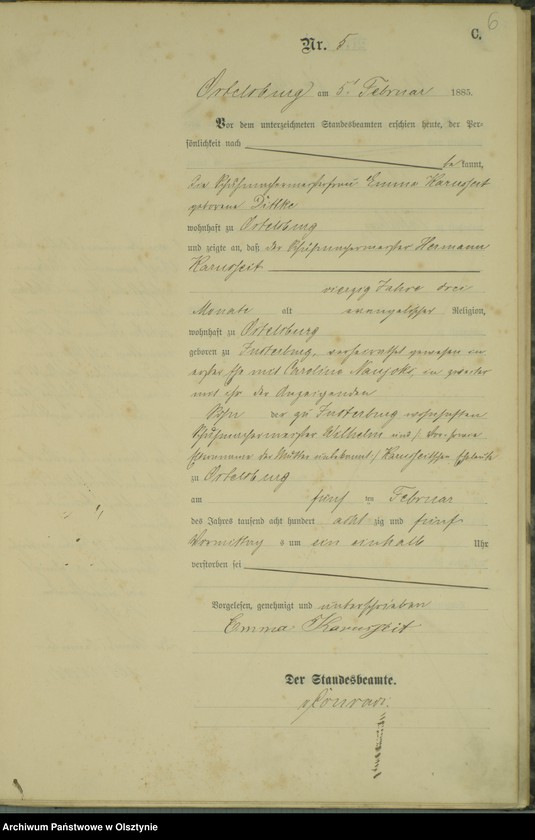 6
C.
Nr. 5.
Ortelsburg am 5t Februar 1885.
Vor dem unterzeichneten Standesbeamten erschien heute, der Per-
sönlichkeit nach
be kannt,
die Schuhmachermeisterfrau Emma Karusseit
geborene Dittke
wohnhaft zu Ortelsburg
und zeigte an, daß der Schuhmachermeister Hermann
Karusseit
vierzig Jahre drei
Monate alt evangelischer Religion,
wohnhaft zu Ortelsburg
geboren zu Insterburg, verheirathet gewesen in
erster Ehe mit Caroline Naujoks, in zweiter
mit ihr der Anzeigenden
Sohn der zu Insterburg wohnhaften
Schuhmachermeister Wilhelm und
der Mutter unbekannt / Karusseitschen Eheleute
zu Ortelsburg
am fünf ten Februar
des Jahres tausend acht hundert acht zig und fünf
Vormittag s um ein einhalb Uhr
verstorben sei
Vorgelesen, genehmigt und unterschrieben
Emma Karusseit
Der Standesbeamte.
Conrad.
Archiwum Państwowe w Olsztynie